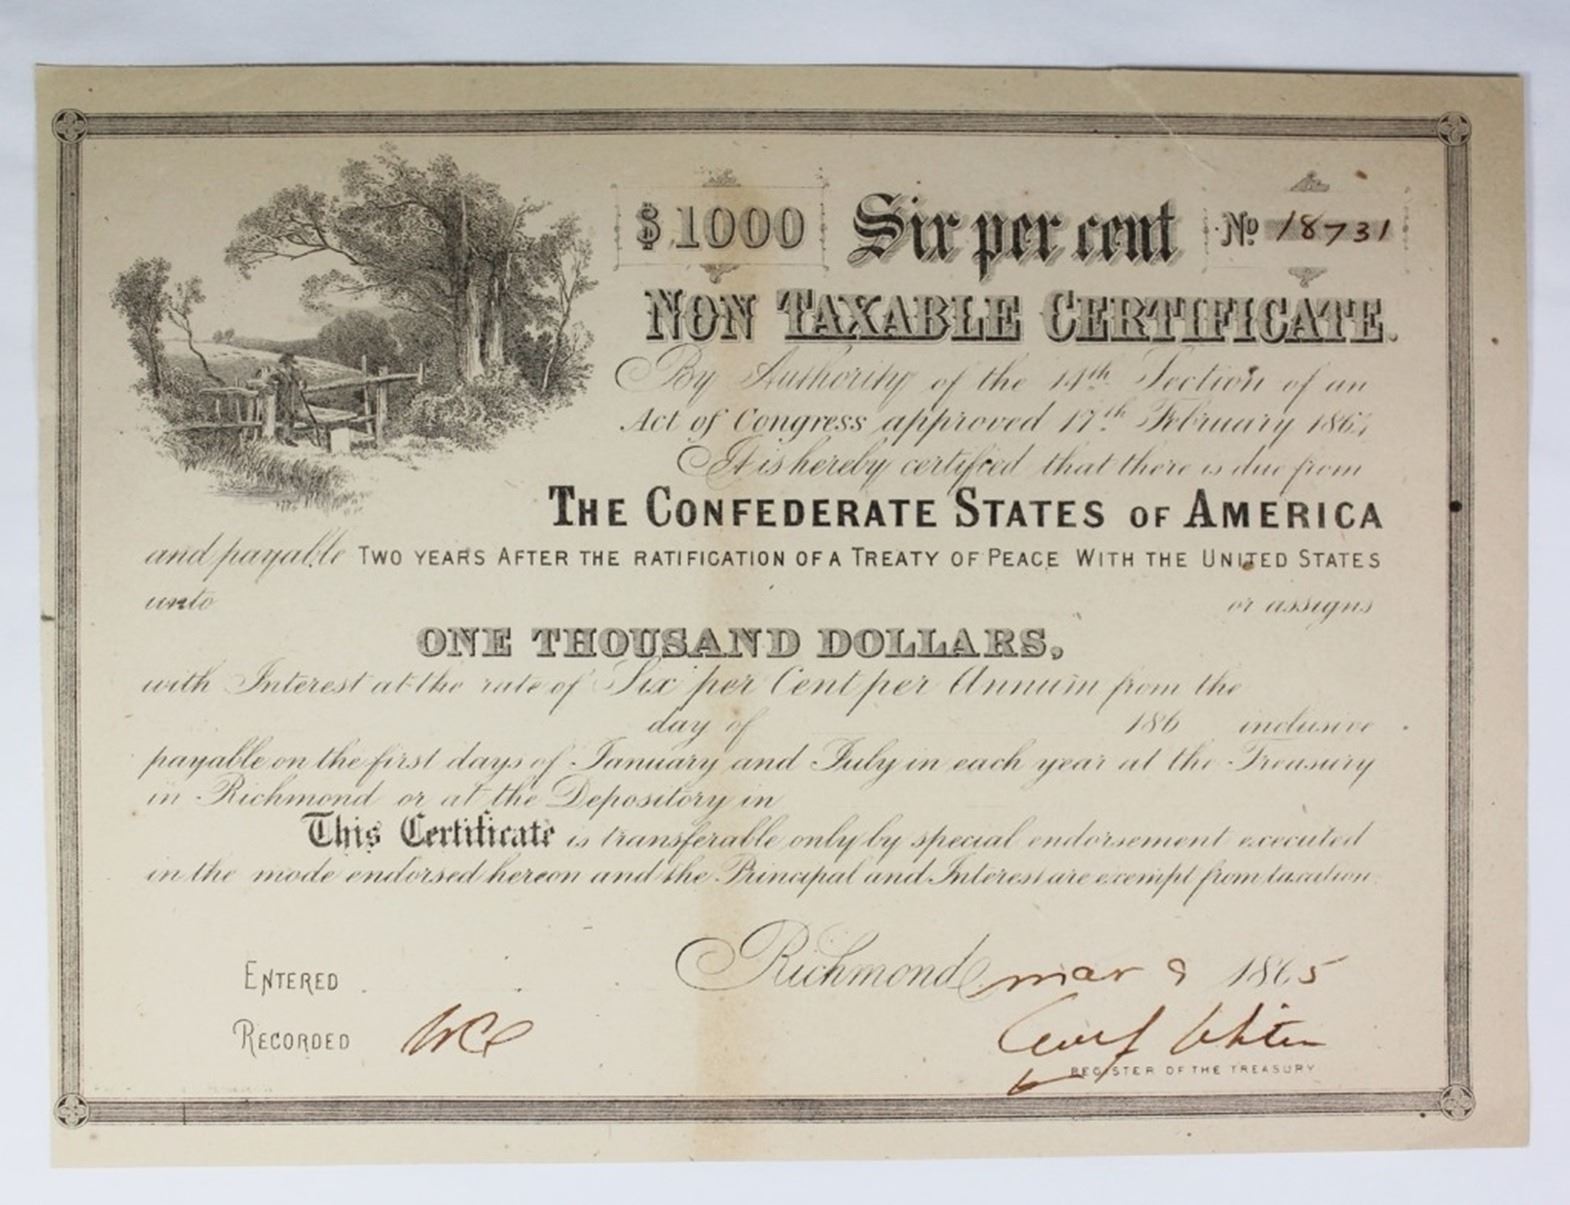 $1000 Six per cent No 18731
NON TAXABLE CERTIFICATE.
By Authority of the 14th Section of an
Act of Congress approved 17th February 1864
It is hereby certified that there is due from
THE CONFEDERATE STATES OF AMERICA
and payable TWO YEARS AFTER THE RATIFICATION OF A TREATY OF PEACE WITH THE UNITED STATES
unto or assigns
ONE THOUSAND DOLLARS,
with Interest at the rate of Six per Cent per Annum from the
day of 186 inclusive
payable on the first days of January and July in each year at the Treasury
in Richmond or at the Depository in
This Certificate is transferable only by special endorsement executed
in the mode endorsed hereon and the Principal and Interest are exempt from taxation.
Richmond mar 9 1865
ENTERED
RECORDED
REGISTER OF THE TREASURY